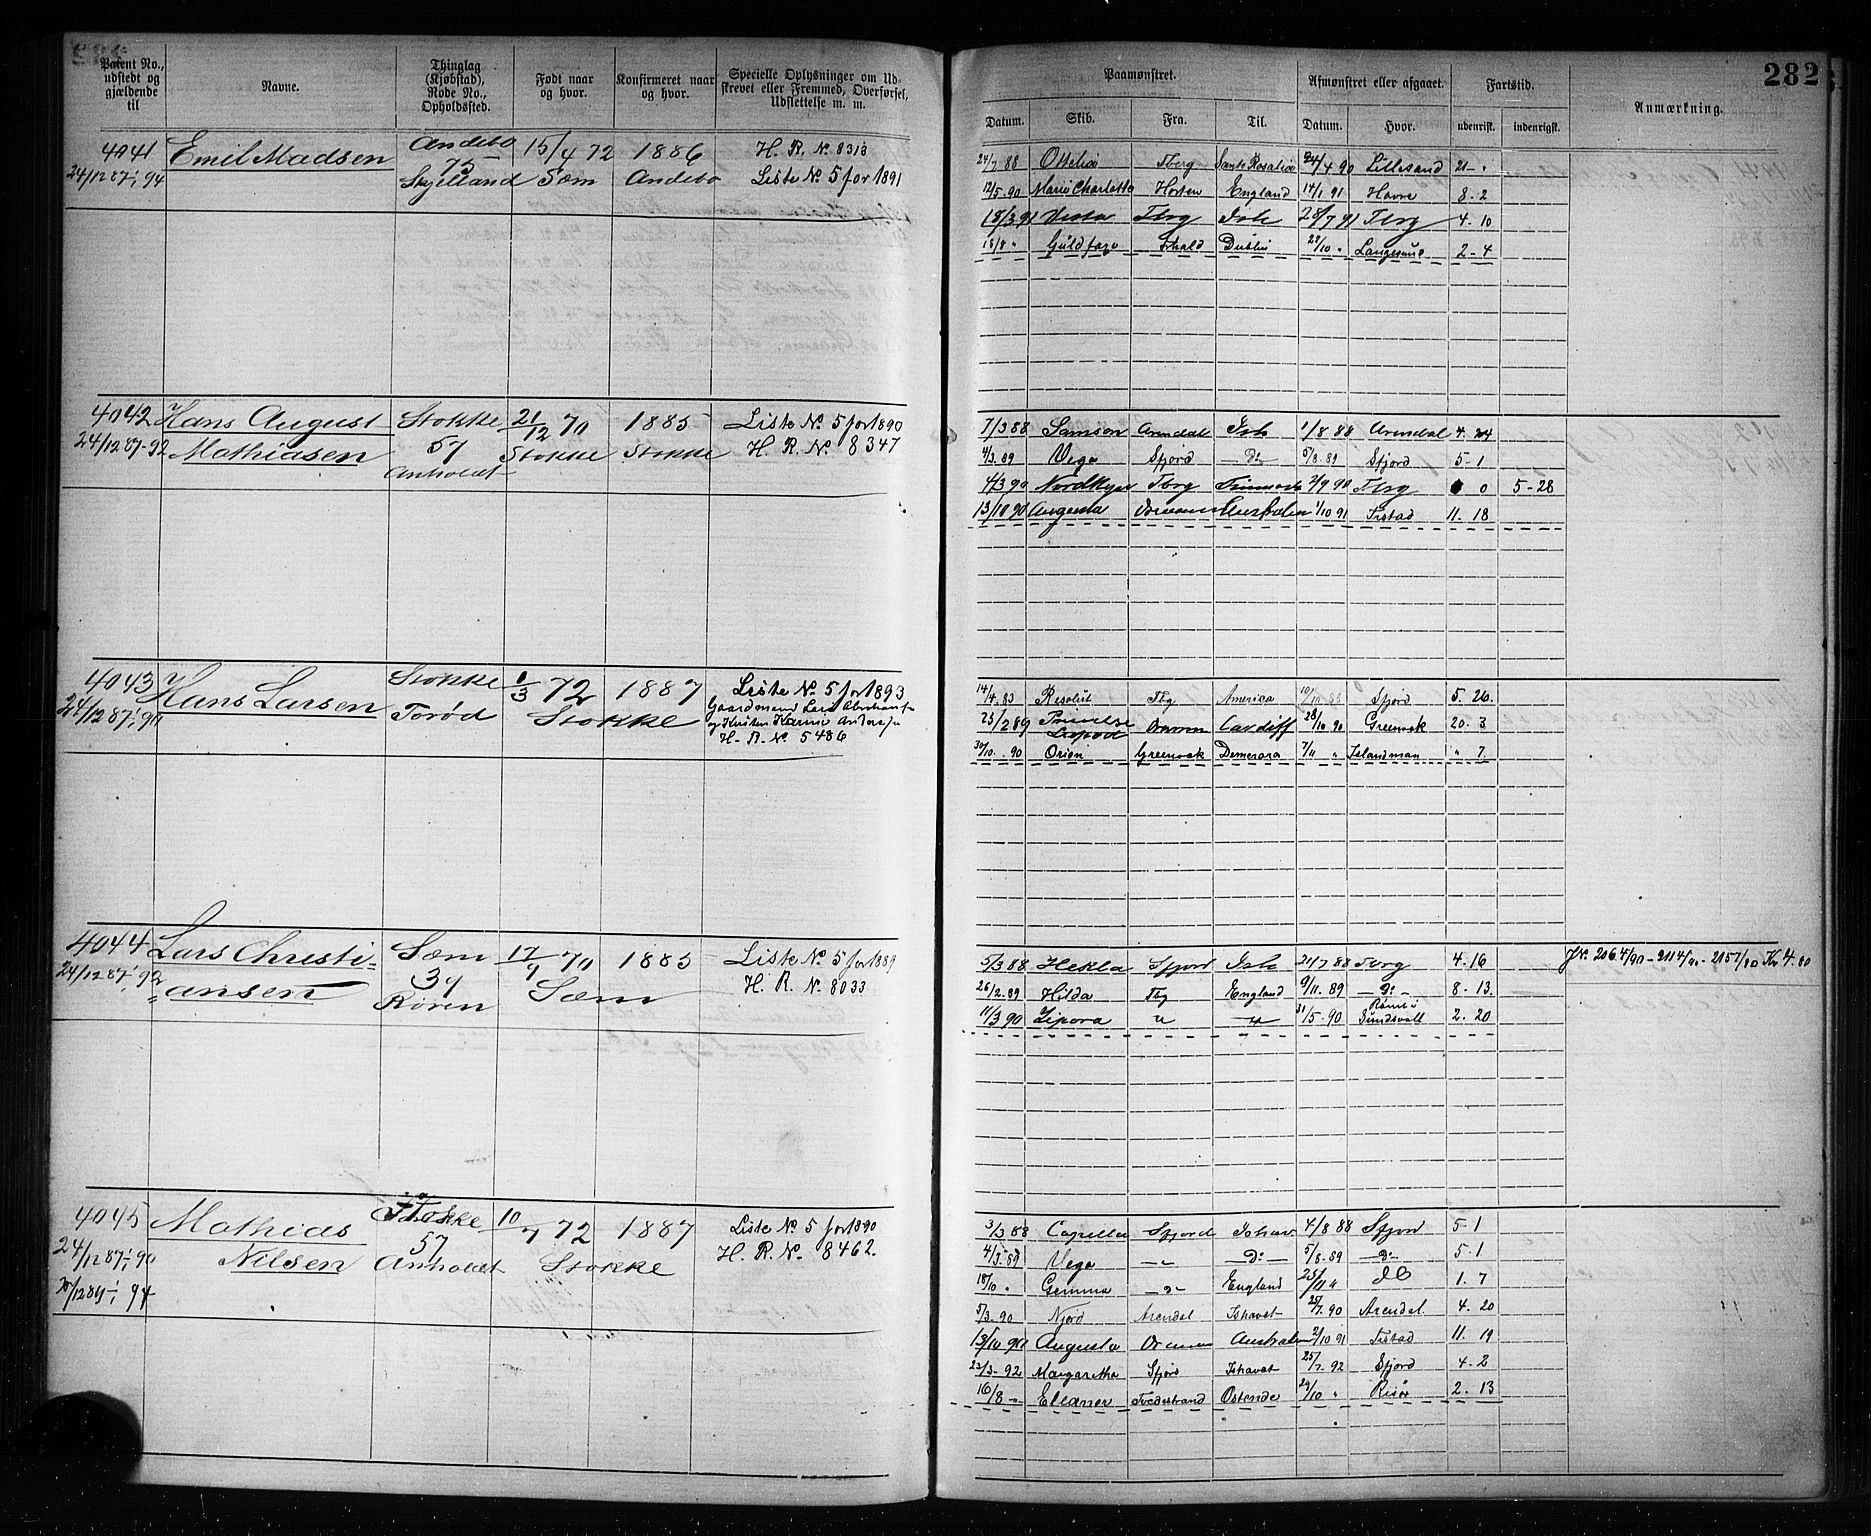 282
Patent No., udstedt og gjældende til
Navne.
Thinglag (Kjøbstad), Rode No., Opholdssted.
Født naar og hvor.
Konfirmeret naar og hvor.
Specielle Oplysninger om Udskrevet eller Fremmed, Overførsel, Udslettelse m. m.
Paamønstret.
Afmønstret eller afgaaet.
Fartstid.
Anmærkning.
Datum. Skib. Fra. Til. Datum. Hvor. udenrigsk. indenrigsk.
4041 Emil Madsen Andebo 15/4 72 1886 H. R. No 8313
24/12 87-1/1 94 75 Skjelland Sæm Andebo Liste No 5 for 1891
24/7 88 Ottelia Tberg Santa Rosalia 24/4 90 Lillesand 21 - "
12/5 90 Marie Charlotte Horten England 14/1 91 Havre 8 - 2
18/3 91 Vesta Tbrg Ish 28/7 91 Tbrg 4 - 10
18/8 " Guldfaxe Fhald Dublin 22/10 " Langesund 2 - 4
4042 Hans August Stokke 21/12 70 1885 Liste No 5 for 1890
24/12 87-92 Mathiasen 57 Stokke Stokke H. R. No 8347
Anholdt
7/3 88 Samson Arendal Ish 1/8 88 Arendal 4. 24
4/3 89 Vega Sfjord Do 5/8 89 Sfjord 5 - 1
4/3 90 Nordkyn Tbrg 2/9 90 Tbrg 0 5 - 28
13/10 90 Augusta Drammen Australien 1/10 91 Frstad 11. 18
4043 Hans Larsen Stokke 1/3 72 1887 Liste No 5 for 1893
24/12 87-1/1 90 Torød Stokke Gaardmand Lars Abrahams
og Kirsten Karine Anders
H. R. No 5486
14/4 83 Resolut Tbg America 10/10 88 Sfjord 5. 26
25/2 89 Leopold Dramm Cardiff 28/10 90 Greenock 20. 3
30/10 90 Orion Greenock Demerara 7/11 " Islandman " 7
4044 Lars Christi- Sæm 17/9 70 1885 Liste No 5 for 1889
24/12 87-1/1 92 ansen 34 Sæm H. R. No 8033
Røren
5/3 88 Hekla Sfjord Ish 21/7 88 Tbrg 4. 16 JN. 206 4/90 - 211 4/90 - 215 7/90 Kr 4.80
26/2 89 Hilda Tbg England 9/11 89 Do 8 - 13
11/3 90 Zipora " " 31/5 90 Sundsvall 2. 20
4045 Mathias Stokke 10/7 72 1887 Liste No 5 for 1890
24/12 87-1/1 90 Nilsen 57 Anholdt Stokke H. R. No 8462.
20/12 89-1/1 94
3/3 88 Capella Sfjord Ishav. 4/8 88 Sfjord 5 - 1
4/3 89 Vega - " - Do 5/8 89 Do 5 - 1
18/10 " Gemma - " - England 1. 7
5/3 90 Njord Arendal Ishavet 25/7 90 Arendal 4. 20
13/10 90 Augusta Drammen Australien 2/10 91 Frstad 11. 19
23/3 92 Margaretha Sfjord Ishavet 25/7 92 Sfjord 4 - 2
16/8 - Eleanor Tvedestrand Ostende 29/10 " Risør 2. 13